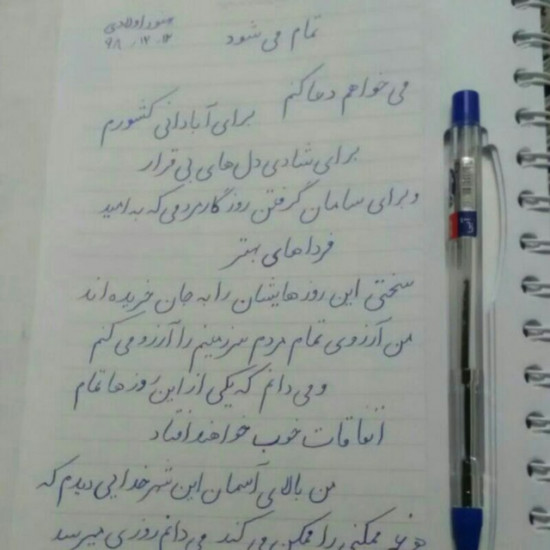 تمام می شود
۹۸/۱۲/۱۲
می خواهم دعا کنم
برای آبادانی کشورم
برای شادی دل های بی قرار
و برای سامان گرفتن روزگار مردمی که به امید
فرداهای بهتر
سختی این روزهایشان را به جان خریده اند
من آرزوی تمام مردم سرزمینم را آرزو می کنم
و می دانم که یکی از این روزها تمام
اتفاقات خوب خواهند افتاد
من بالای آسمان این شهر خدایی دیدم که
هر غیر ممکنی را ممکن می کند می دانم روزی میرسد